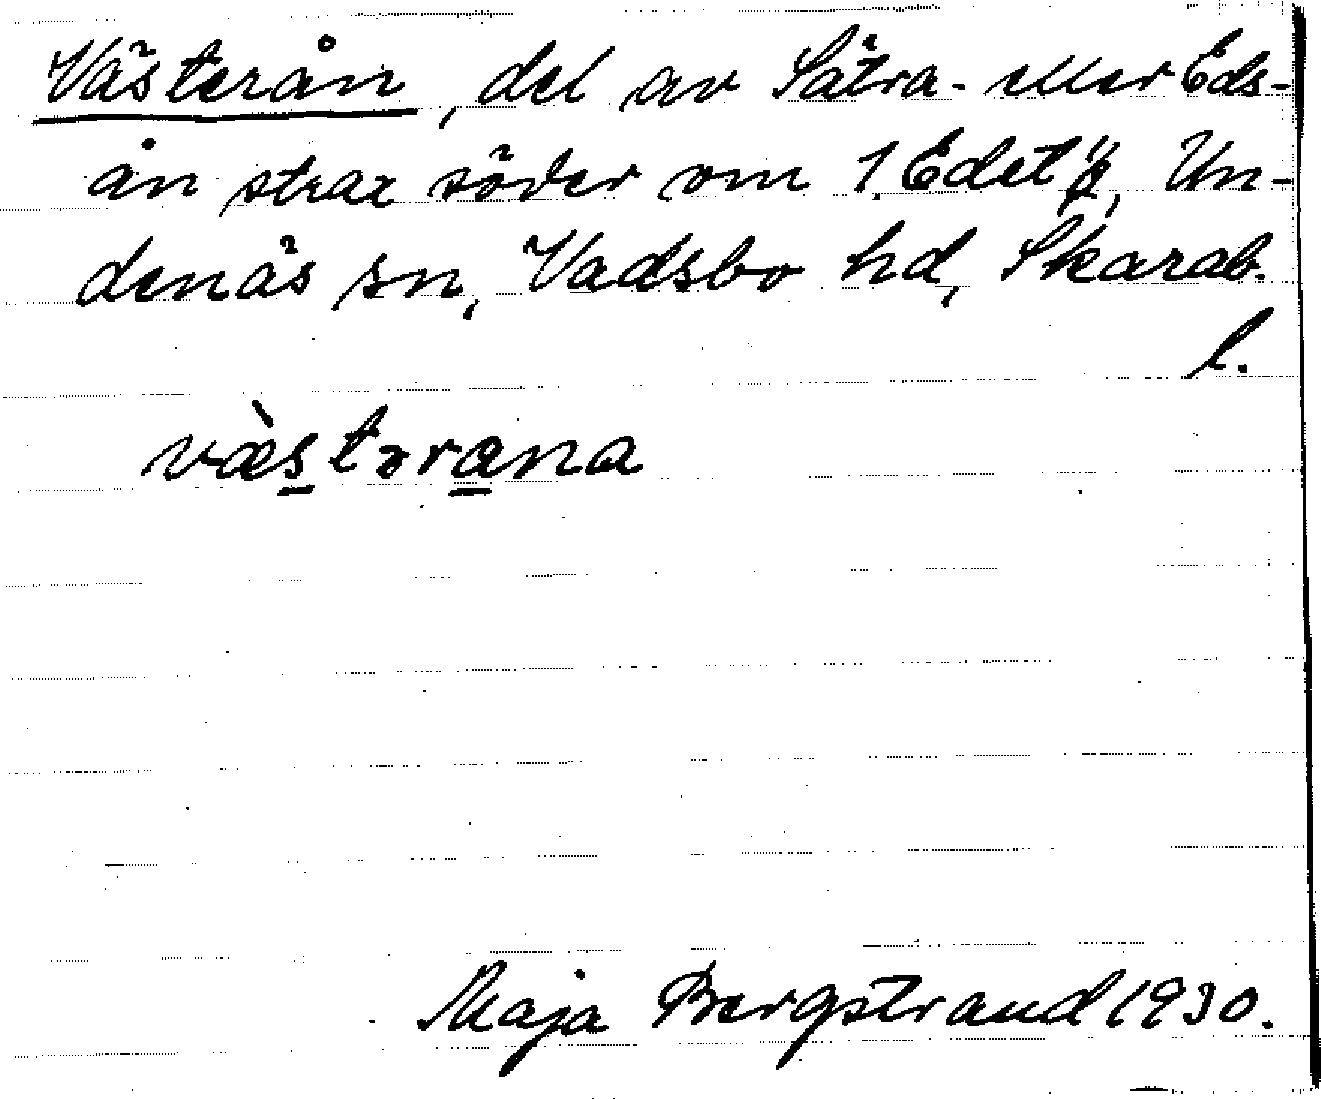 Västerån, del av Sätra- eller Eds-
ån strax söder om 1 Edet 4/4, Un-
denäs sn, Vadsbo hd, Skarab.
l.
væ̀stərana
Maja Bergstrand 1930.